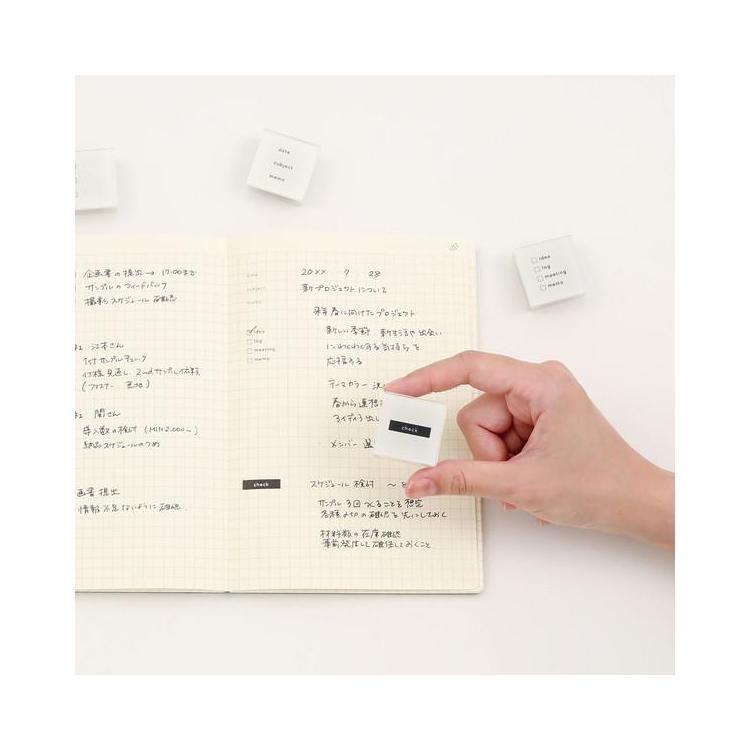 date
subject
memo
idea
log
meeting
memo
企画書の提出 → 17:00まで
サンプルのフィードバック
撮影スケジュール 確認
江本さん
サンプルチェック
仕様見直し 2nd サンプル依頼
関さん
導入数の検討 (MIN2.000～)
納品スケジュールのつめ
画書 提出
情報 不足ないように 確認
date
20XX 7 28
subject
新プロジェクトについて
memo
来年 春に向けたプロジェクト
idea
log
meeting
memo
新しい季節 新生活や出会い
にわくわくする気持ちを
応援する
テーマカラー 決
春から連想
アイディア出し
メンバー 選
check
check
スケジュール 検討 ～を
サンプル 3回 つくることを 想定
の確認を 先にしておく
材料数の在庫確認
事前発注して 確保しておくこと